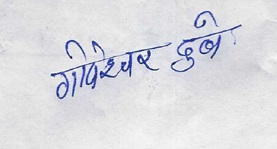 गोपेश्वर दुबे